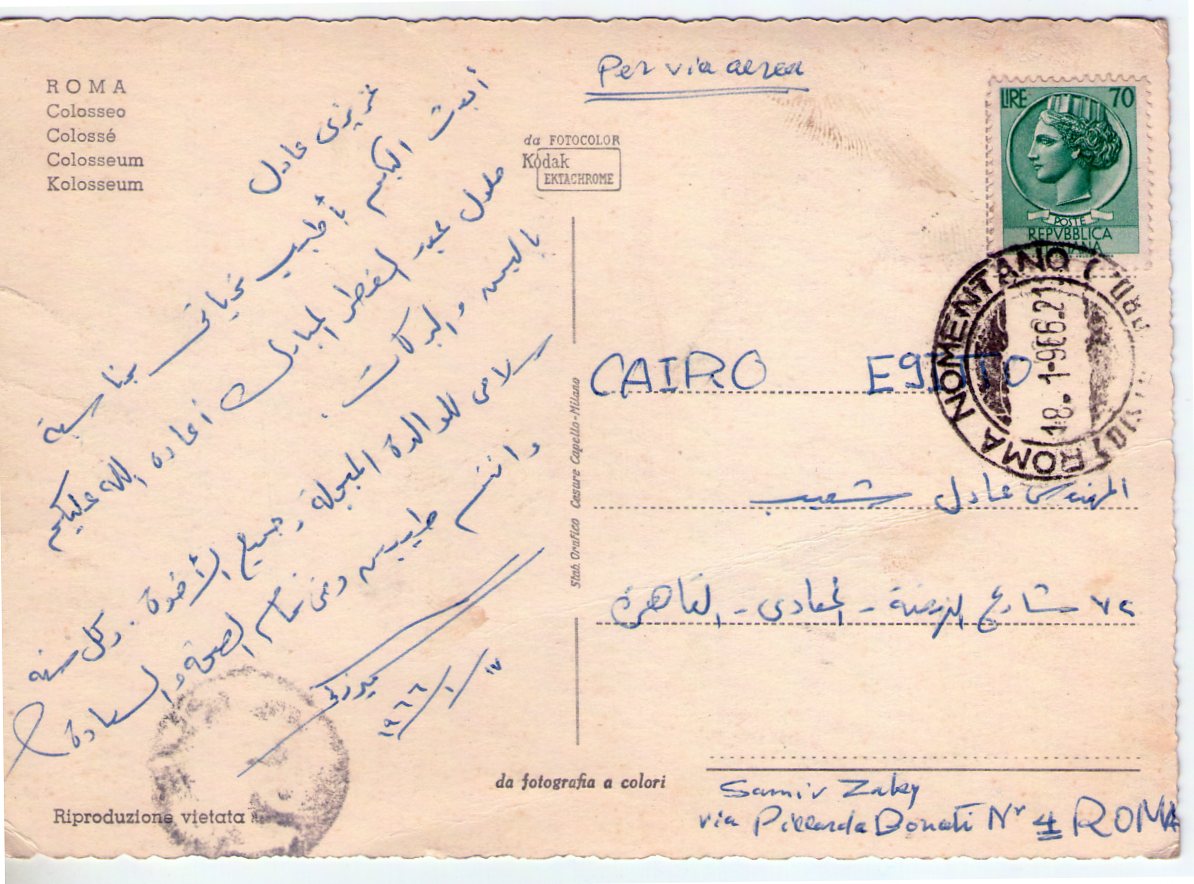 ROMA
Colosseo
Colossé
Colosseum
Kolosseum
عزيزى عادل
أبعث اليكم بأطيب تحياتى بمناسبة
حلول عيد الفطر المبارك أعاده الله عليكم
باليمن والبركات.
سلامى للوالدة المبجلة وجميع الأخوة. وكل سنه
وانتم طيبين وفى تمام الصحة والسعادة
١٩٦٦/١/١٧
Riproduzione vietata
da FOTOCOLOR
Kodak
EKTACHROME
Stab. Grafico Cesare Capello-Milano
da fotografia a colori
Per via aerea
LIRE 70
POSTE
REPVBBLICA
ROMA NOMENTANO
18. 1-966.21
CAIRO EGITTO
المهندس عادل شعيب
شارع - المعادى - القاهرة
Samir Zaky
via Piccarda Donati Nr 4 ROMA